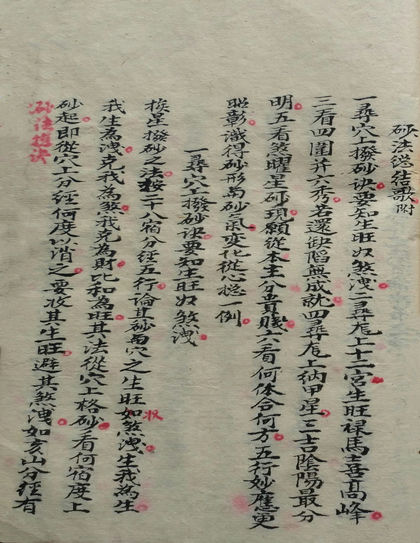 砂法從結歌附
一尋穴上撥砂訣要知生旺奴煞洩二尋龍上十二宮生旺祿馬喜高峰
三看四圍并六秀若還缺陷無成就四尋龍上納甲星三吉陰陽最分
明五看煞曜星砂現願從本主分貴賤六看何体合何方五行妙應更
昭彰識得砂形与砂氣变化從心總一例
一尋穴上撥砂訣要知生旺奴煞洩
挨星撥砂之法按二十八宿分經五行論其砂与穴之生旺奴煞洩生我為生
我生為洩克我為煞我克為財比和為旺其法從穴上格砂看何宿度上
砂起即從穴上分經何度以消之要收其生旺避其煞洩如亥山分經有
砂法捷訣